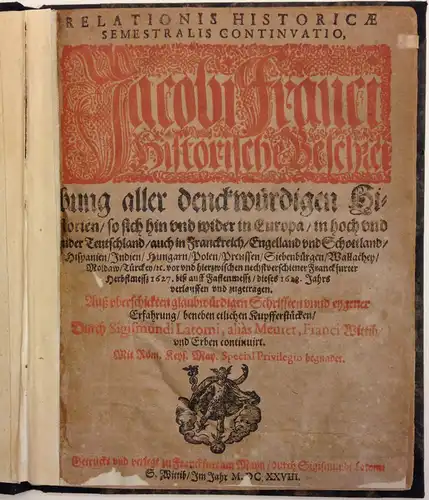 RELATIONIS HISTORICÆ
SEMESTRALIS CONTINVATIO,
Jacobi Franci
Historische Beschrei
bung aller denckwürdigen Hi-
storien / so sich hin vnd wider in Europa / in hoch vnd
nider Teutschland / auch in Franckreich / Engelland vnd Schottland /
Hispanien / Indien / Hungarn / Polen / Preussen / Siebenbürgen / Wallachey /
Moldaw / Türckey / ꝛc. vor vnd hierzwischen nechstverschiener Franckfurter
Herbstmeß 1627. biß auff Fastenmeß / dieses 1628. Jahrs
verlauffen vnd zugetragen.
Auß vberschickten glaubwürdigen Schrifften vnnd eygener
Erfahrung / beneben etlichen Kupfferstücken /
Durch Sigismundi Latomi, aliàs Meurer, Franci Wittib /
vnd Erben continuirt.
Mit Röm. Keys. May. Special Privilegio begnadet.
Getruckt vnd verlegt zu Franckfurt am Mayn / durch Sigismundi Latomi
S. Wittib / Im Jahr M. DC. XXVIII.